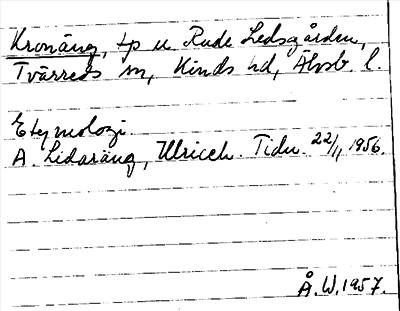 Kronäng, tp u. Rude Ledsgården,
Tvärreds sn, Kinds hd, Älvsb. l.
Etymologi.
A. Lidaräng, Ulriceh. Tidn. 22/11 1956.
Å.W. 1957.